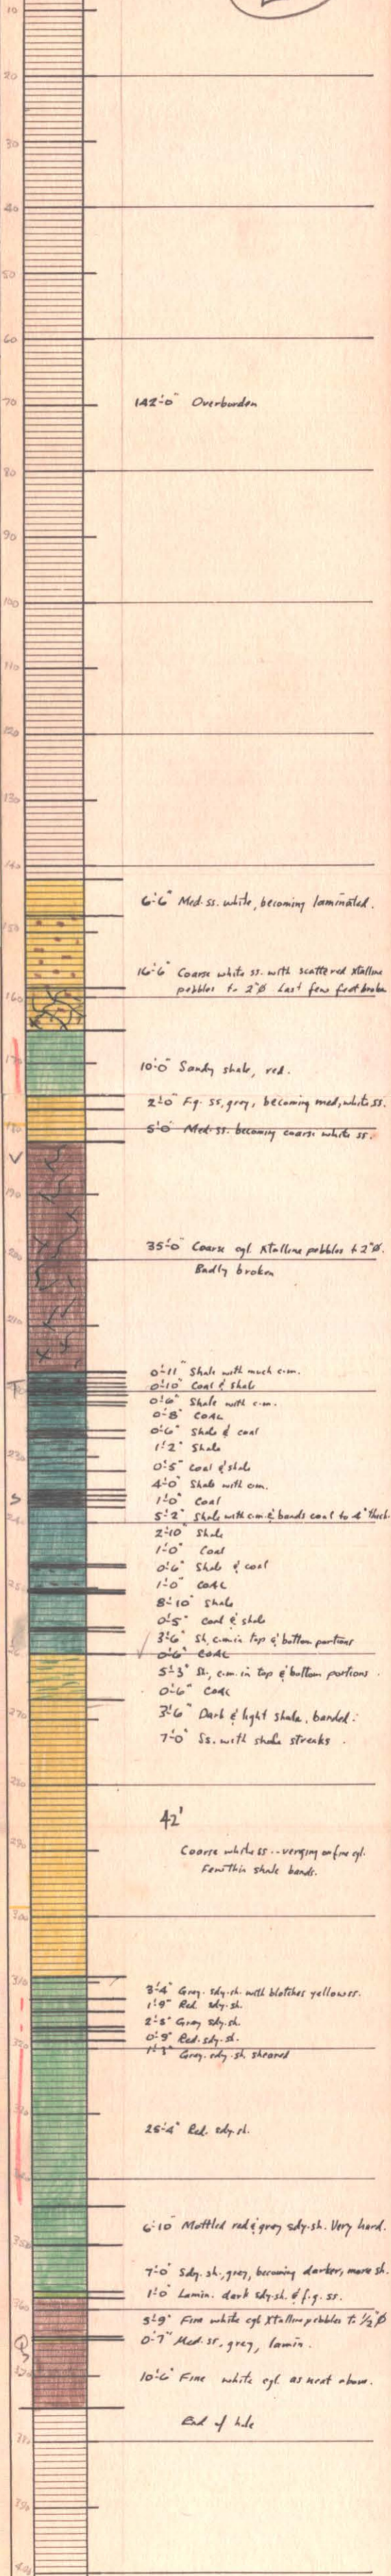 10
20
30
40
50
60
142'-0" Overburden
70
80
90
100
110
120
130
140
6'-6" Med. ss. white, becoming laminated.
150
16'-6" Coarse white ss. with scattered xtalline
pebbles to 2"Ø Last few feet broken
160
10'-0" Sandy shale, red.
170
2'-0" F.g. ss, grey, becoming med, white ss.
180
5'-0" Med. ss. becoming coarse white ss.
V
190
35'-0" Coarse cgl. Xtalline pebbles to 2"Ø.
200
Badly broken
210
0'-11" Shale with much c.m.
0'-10" Coal & Shale
T
0'-6" Shale with c.m.
0'-8" COAL
0'-6" Shale & coal
1'-2" Shale
230
0'-5" Coal & shale
4'-0" Shale with c.m.
S
1'-0" Coal
240
5'-2" Shale with c.m. & bands coal to 4" thick.
2'-10" Shale
1'-0" Coal
0'-6" Shale & coal
250
1'-0" COAL
8'-10" Shale
0'-5" Coal & shale
3'-6" Sh, c.m. in top & bottom portions
0'-6" COAL
5'-3" Sh, c.m. in top & bottom portions.
0'-6" COAL
270
3'-6" Dark & light shale, banded.
7'-0" Ss. with shale streaks.
280
42'
290
Coarse white ss -- verging on fine cgl.
Few thin shale bands.
300
310
3'-4" Grey. sdy. sh. with blotches yellow ss.
1'-9" Red sdy. sh.
2'-8" Grey sdy. sh.
0'-9" Red. sdy. sh.
320
1'-3" Grey. sdy. sh. sheared
330
25'-4" Red. sdy. sh.
340
6'-10" Mottled red & grey sdy. sh. Very hard.
350
7'-0" Sdy. sh., grey, becoming darker, more sh.
1'-0" Lamin. dark sdy. sh. & f.g. ss.
360
3'-9" Fine white cgl Xtalline pebbles to 1/2"Ø
Q
0'-7" Med. ss, grey, lamin.
370
10'-6" Fine white cgl. as next above.
End of hole
380
390
400